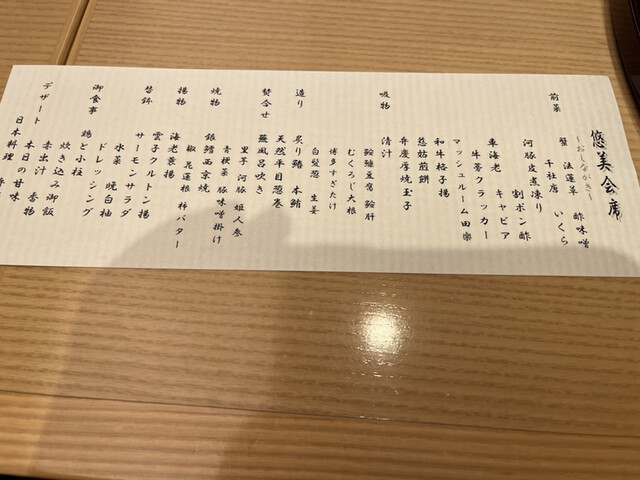 悠美会席
～おしながき～
前菜
蟹 法蓮草 酢味噌
千社唐 いくら
河豚皮煮凍り
割ポン酢
車海老 キャビア
牛蒡クラッカー
マッシュルーム田楽
和牛格子揚
慈姑煎餅
弁慶厚焼玉子
吸物
清汁
鮟鱇豆腐 鮟肝
むくろじ大根
博多すぎたけ
造り
炙り鰆 本鮪
天然平目葱巻
白髪葱 生姜
焚合せ
蕪風呂吹き
里芋 河豚 姫人参
青梗菜 豚味噌掛け
焼物
銀鱈西京焼
椒花蓮根 柿バター
揚物
海老蓑揚
雲子クルトン揚
替鉢
サーモンサラダ
水菜 晩白柚
ドレッシング
御食事
鶏と小柱
炊き込み御飯
赤出汁 香物
デザート
本日の甘味
日本料理